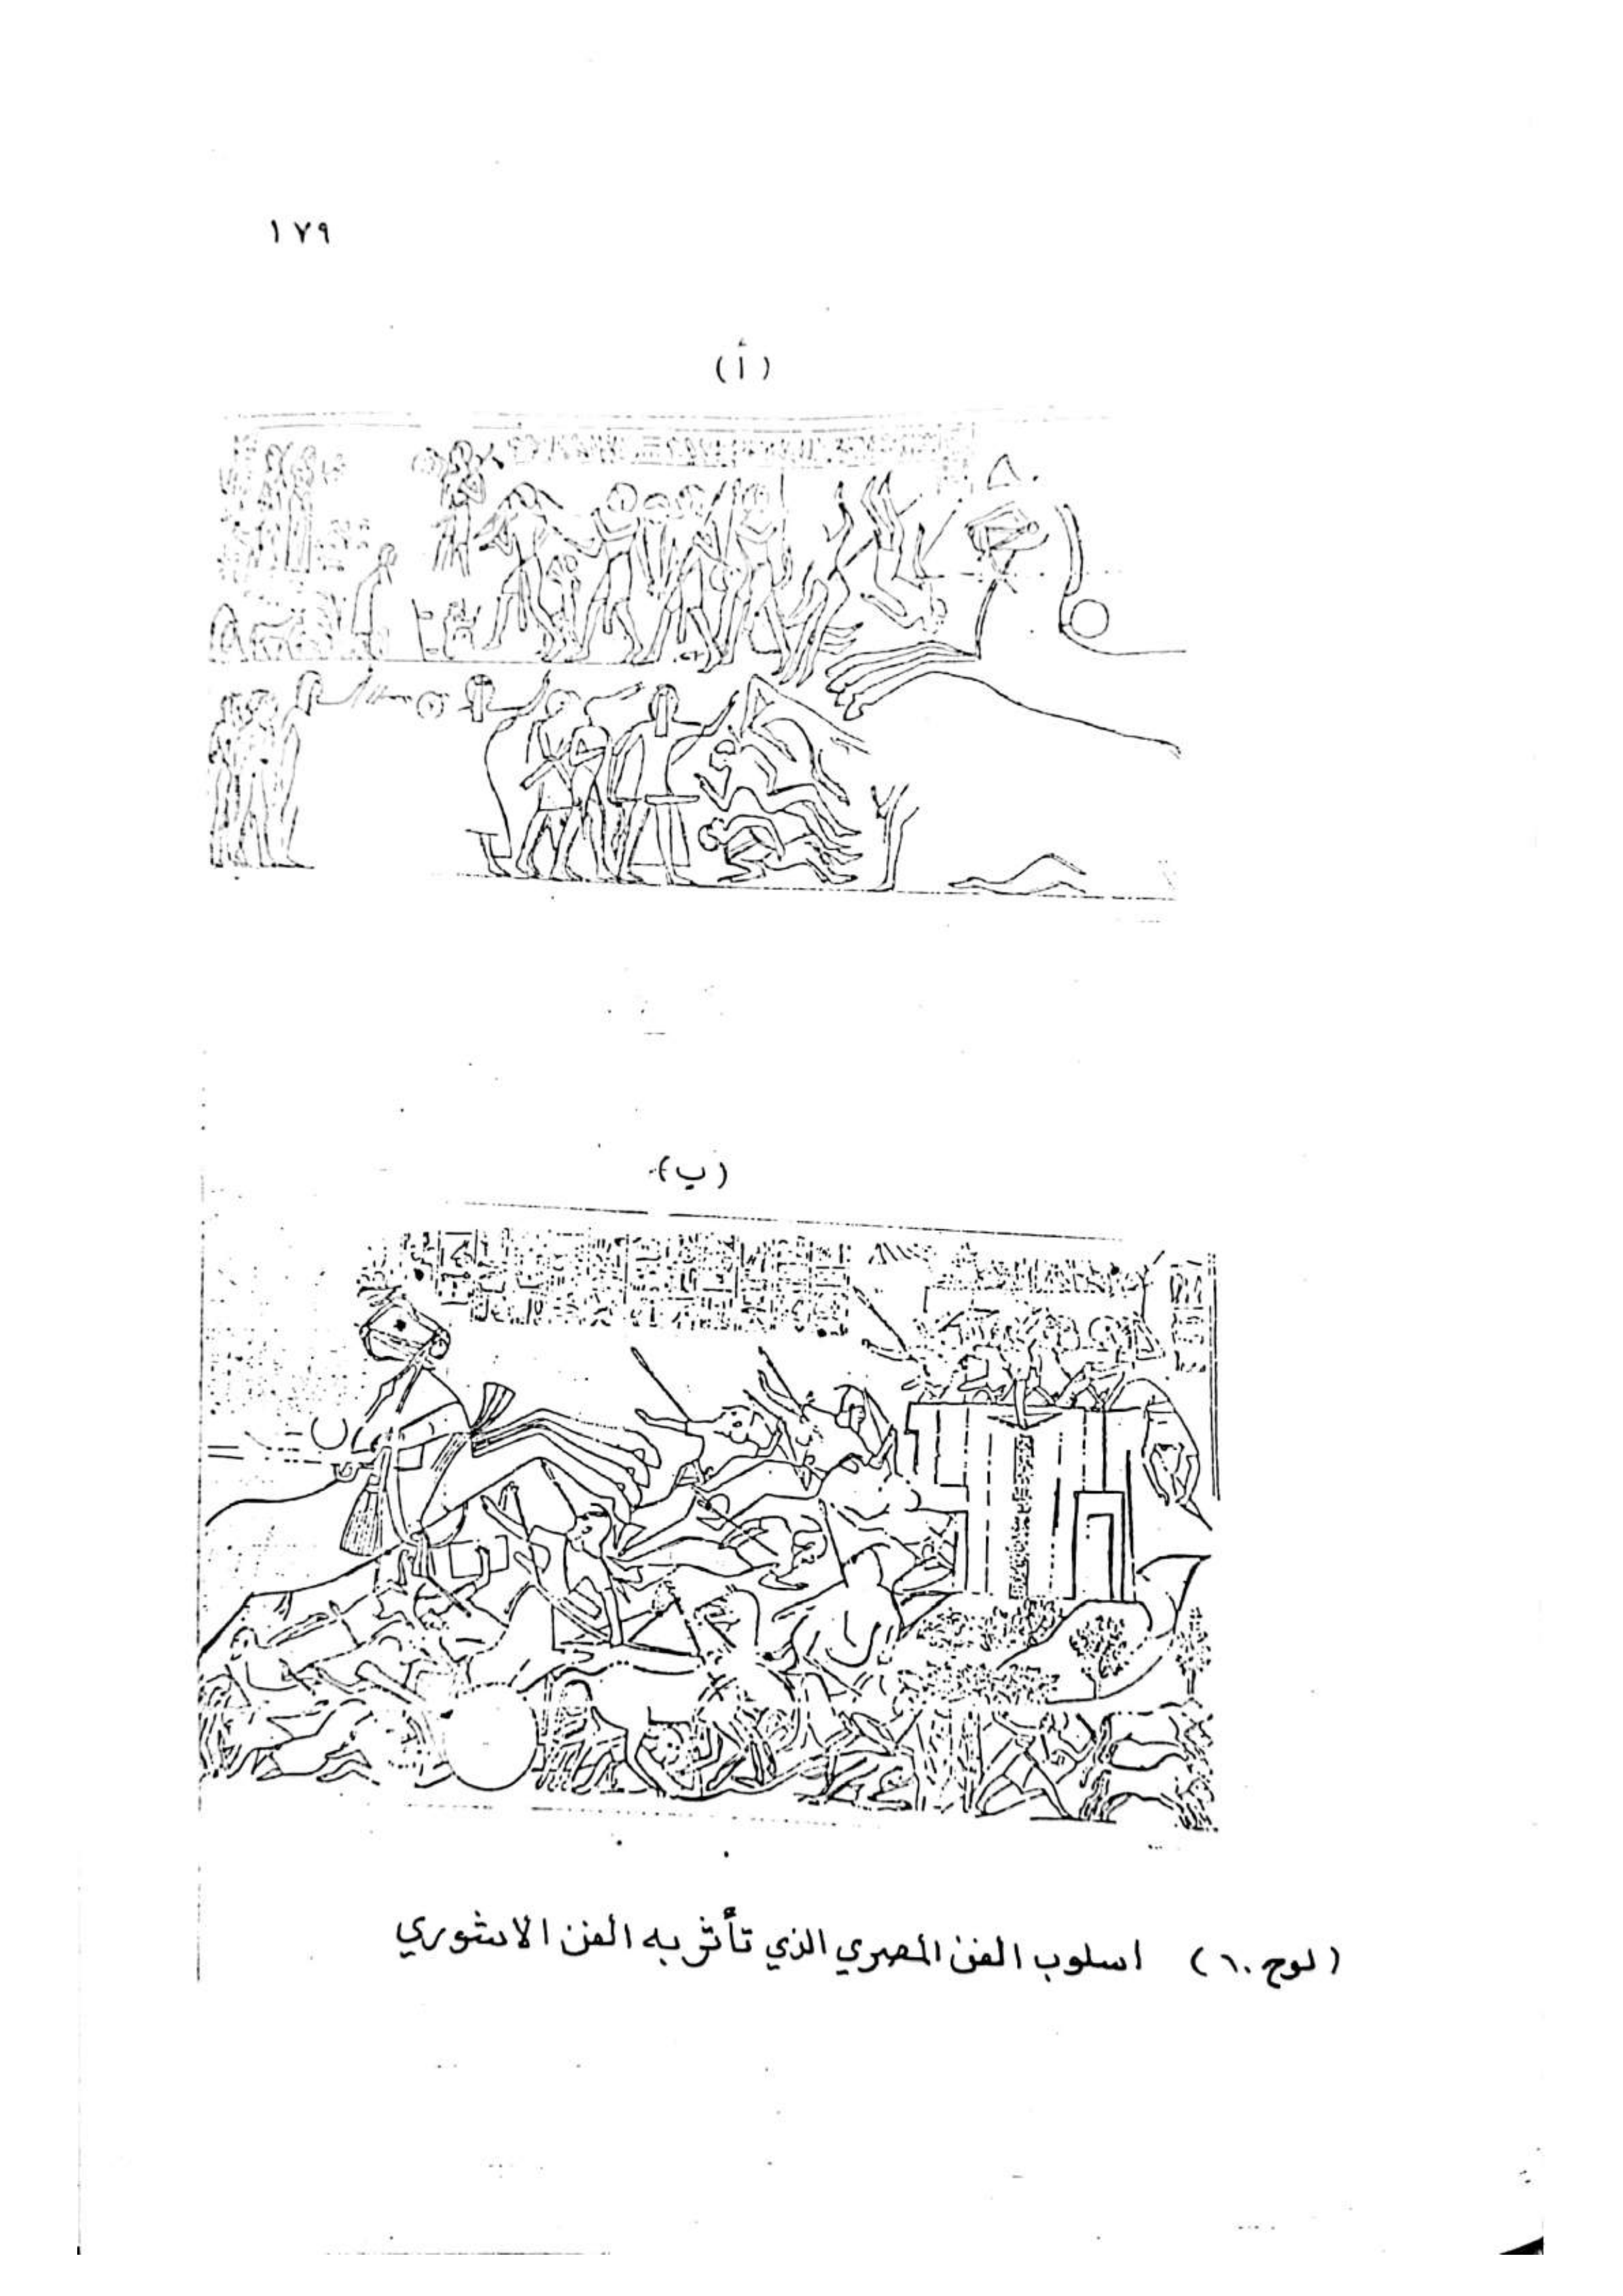 ١٧٩
(أ)
(ب)
(لوح ١٠) اسلوب الفن المصري الذي تأثر به الفن الاشوري